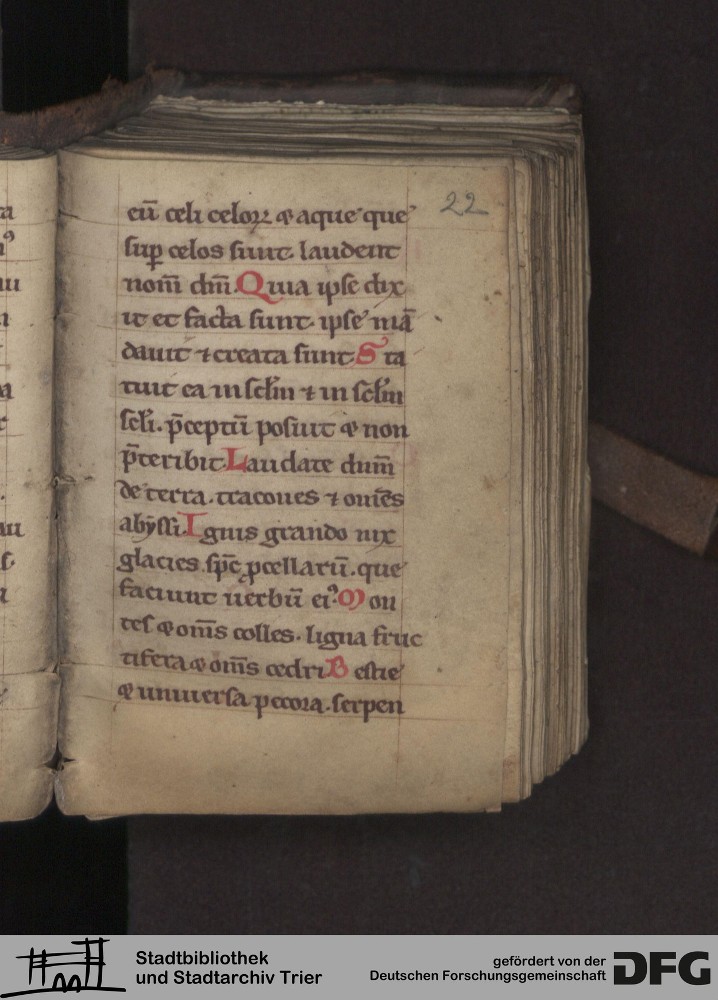 22
eū celi celoꝝ ⁊ aque que
suꝑ celos sunt. laudent
nom̄ dm̄. Quia ipse dix
it et facta sunt. ipse mā
dauit ⁊ creata sunt. Sta
tuit ea in sclm̄ ⁊ in sclm̄
scli. p̄ceptū posuit ⁊ non
p̄teribit. Laudate dnm̄
de terra. tracones ⁊ om̄es
abẏssi. Ignis grando nix
glacies. sp̄c ꝓcellarū. que
faciunt uerbū eiꝰ. Mon
tes ⁊ om̄s colles. ligna fruc
tifera ⁊ om̄s cedri. Bestie
⁊ uniuersa pecora. serpen
Stadtbibliothek
und Stadtarchiv Trier
gefördert von der
Deutschen Forschungsgemeinschaft
DFG